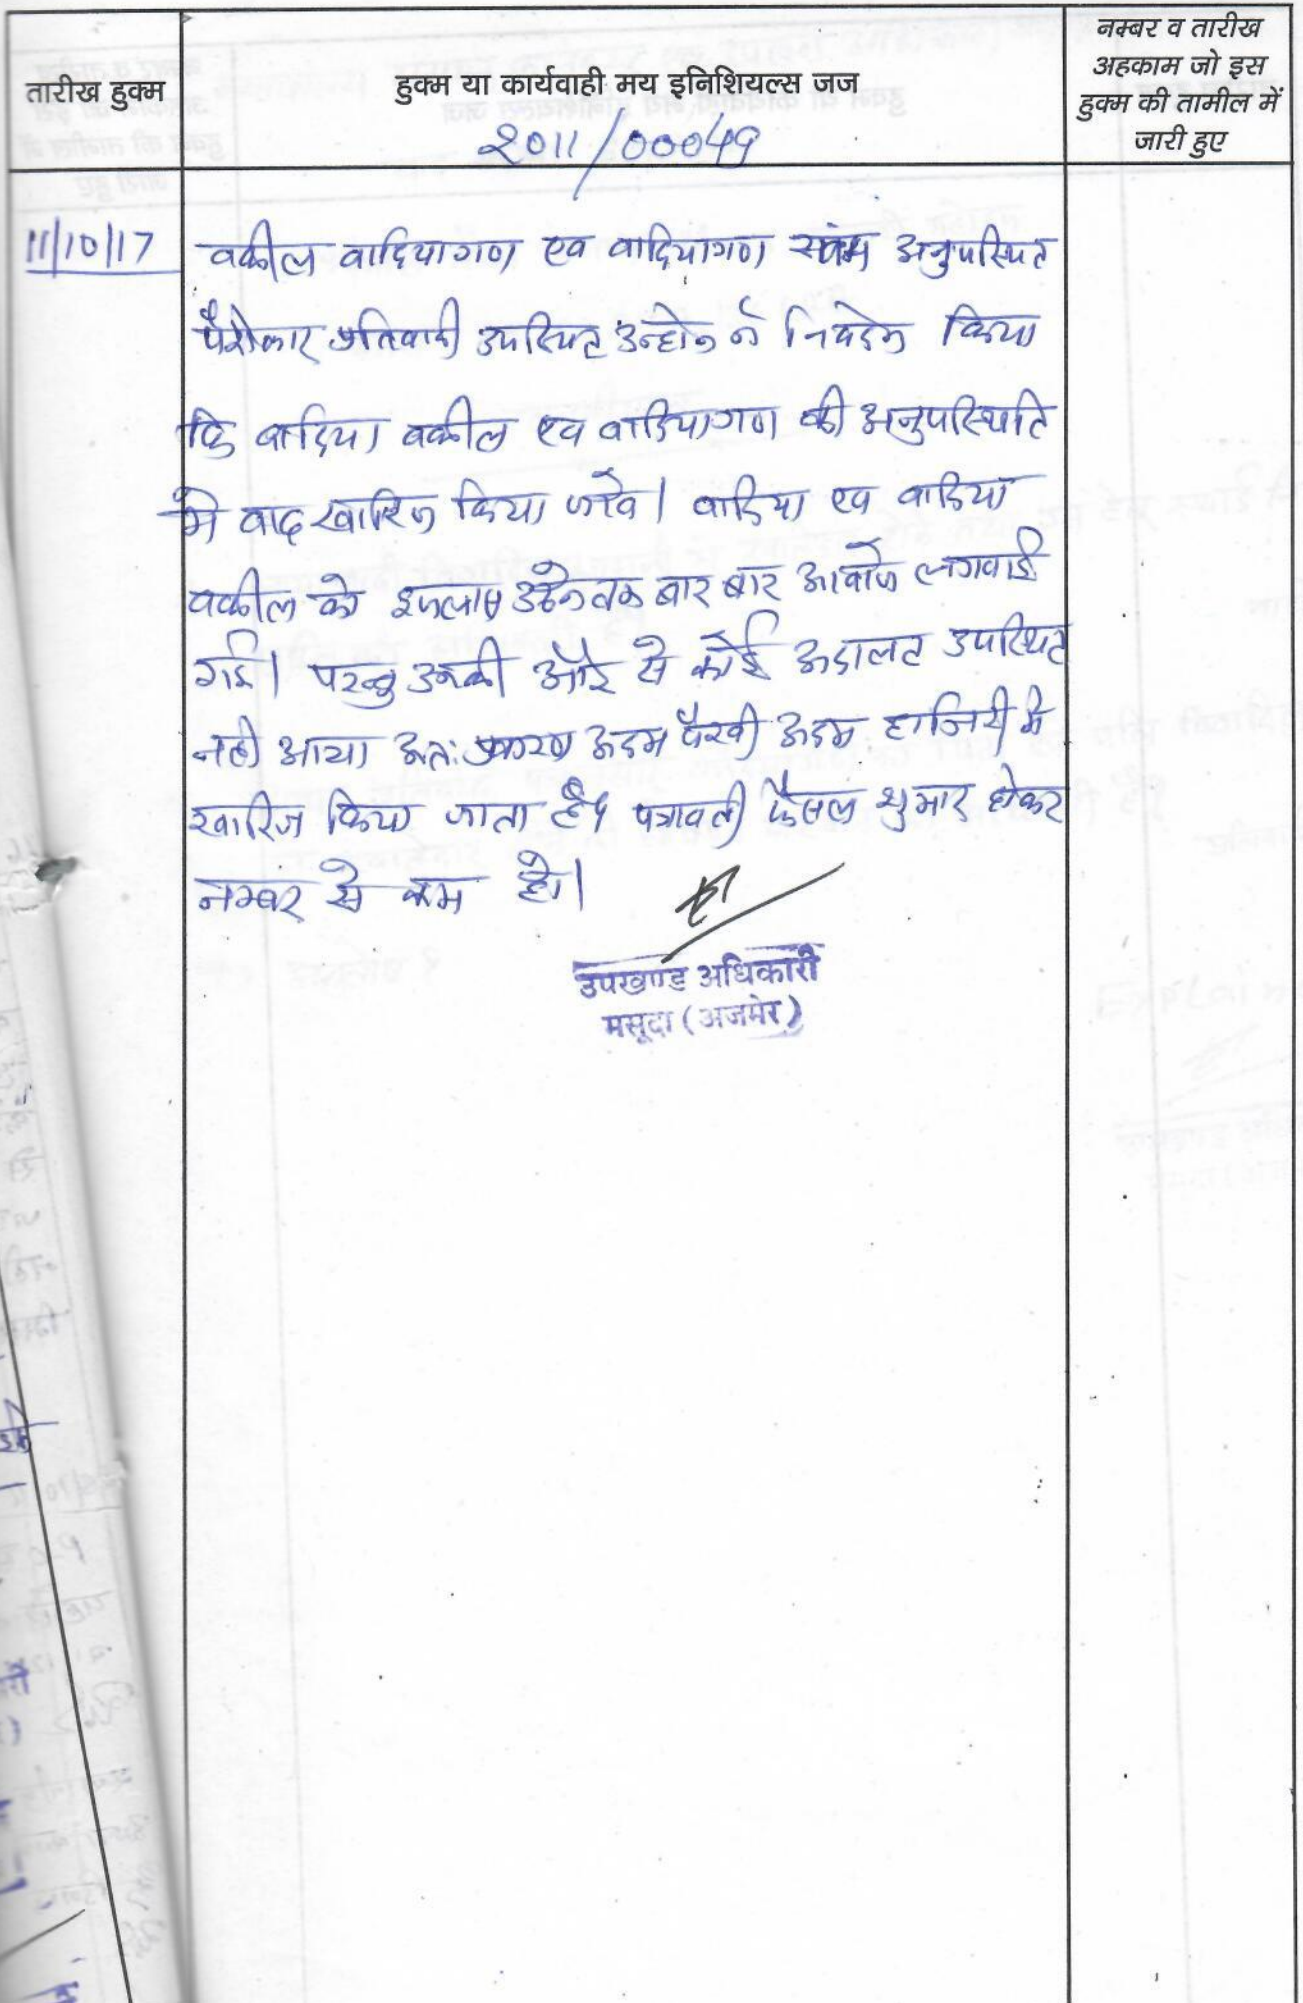 तारीख हुक्म
हुक्म या कार्यवाही मय इनिशियल्स जज
नम्बर व तारीख
अहकाम जो इस
हुक्म की तामील में
जारी हुए
2011/00049
11/10/17
वकील वादियागण एव वादियागण स्वंम अनुपस्थित
पैरोकार प्रतिवादी उपस्थित उन्होने ने निवेदन किया
कि वादिया वकील एव वादियागण की अनुपस्थिति
मे वाद खारिज किया जावे। वादिया एव वादिया
वकील को इजलास उठने तक बार बार आवाजे लगवाई
गई। परन्तु उनकी और से कोई अदालत उपस्थित
नही आया अतः प्रकरण अदम पैरवी अदम हाजिरी मे
खारिज किया जाता है। पत्रावली फैसल शुमार होकर
नम्बर से कम हो।
उपखण्ड अधिकारी
मसूदा (अजमेर)